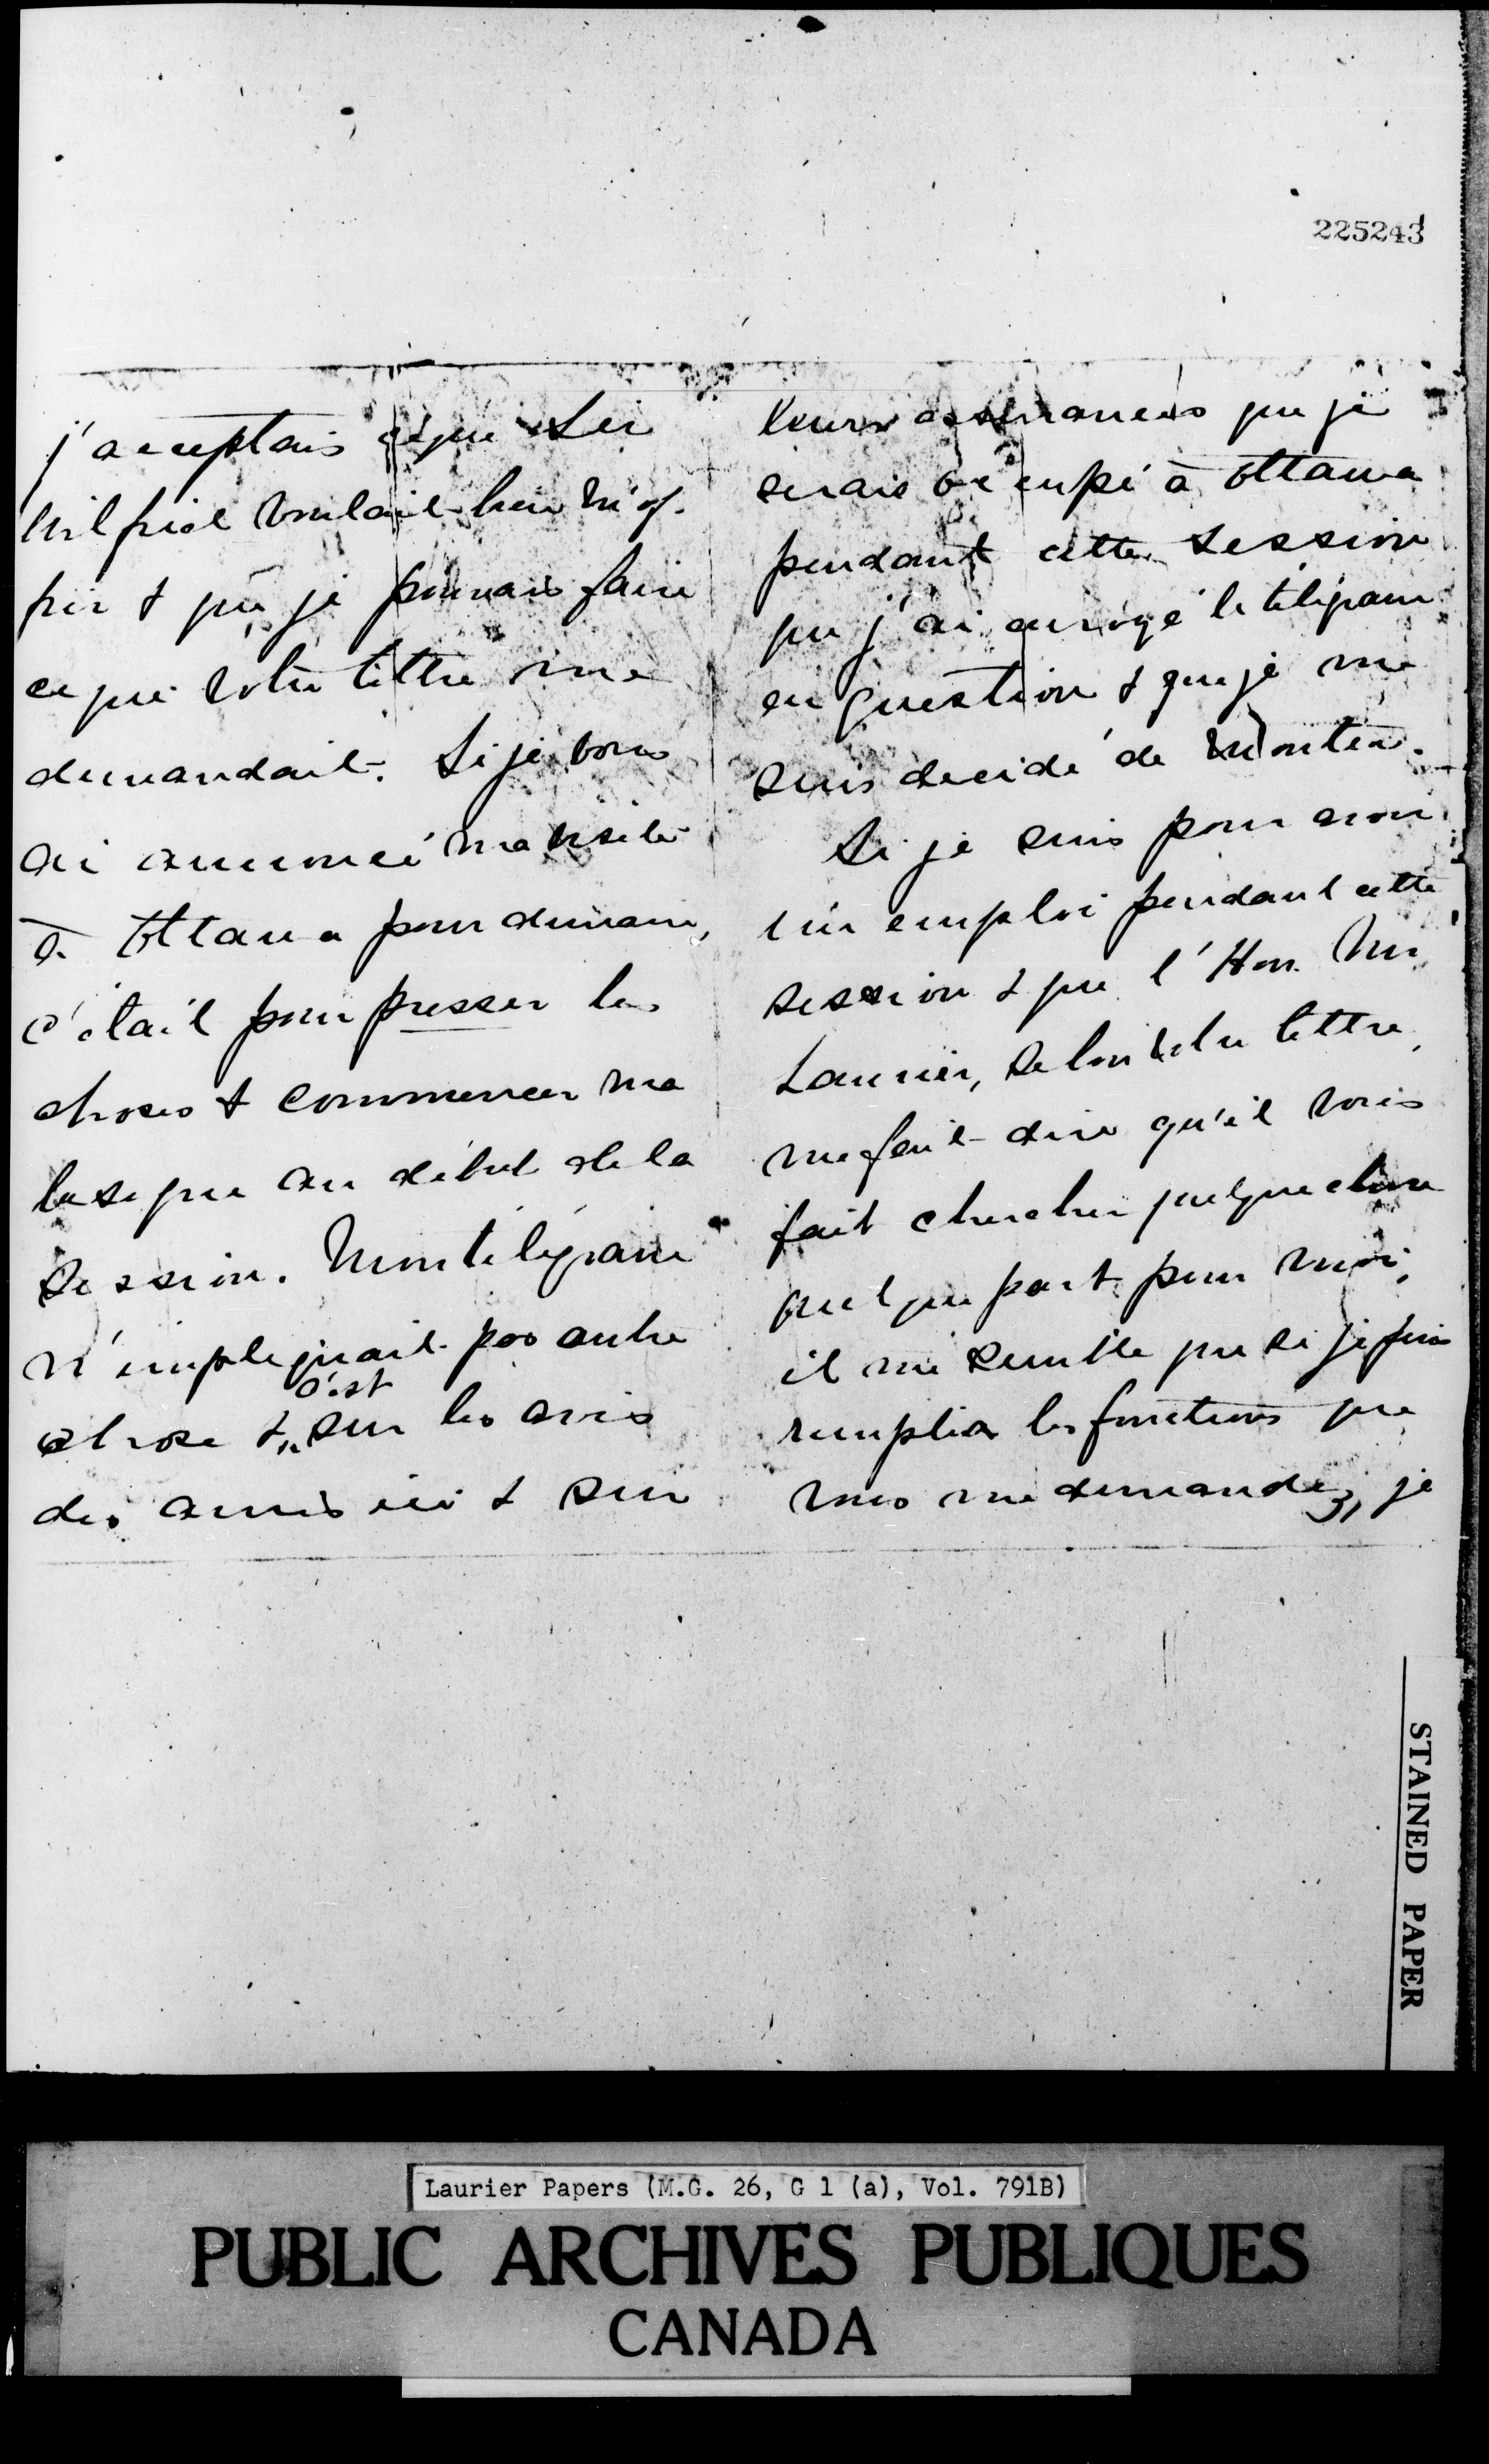 225243
j'acceptais ce que Sir
Wilfrid voulait bien m'of-
frir & que je pouvais faire
ce que votre lettre me
demandait. Si je vous
ai annoncé ma visite
à Ottawa pour demain,
c'était pour presser les
choses & commencer ma
besogne au début de la
session. Mon télégramme
n'impliquait pas autre
chose & c'est sur les avis
des amis ici & sur
leurs assurances que je
serais occupé à Ottawa
pendant cette session
que j'ai envoyé le télégramme
en question & que je me
suis décidé de monter.
Si je suis pour avoir
un emploi pendant cette
session & que l'Hon. Mr
Laurier, selon votre lettre,
me fait dire qu'il vous
fait chercher quelque chose
quelque part pour moi,
il me semble que si je puis
remplir les fonctions que
vous me demandez, je
STAINED PAPER
Laurier Papers (M.G. 26, G 1 (a), Vol. 791B)
PUBLIC ARCHIVES PUBLIQUES
CANADA